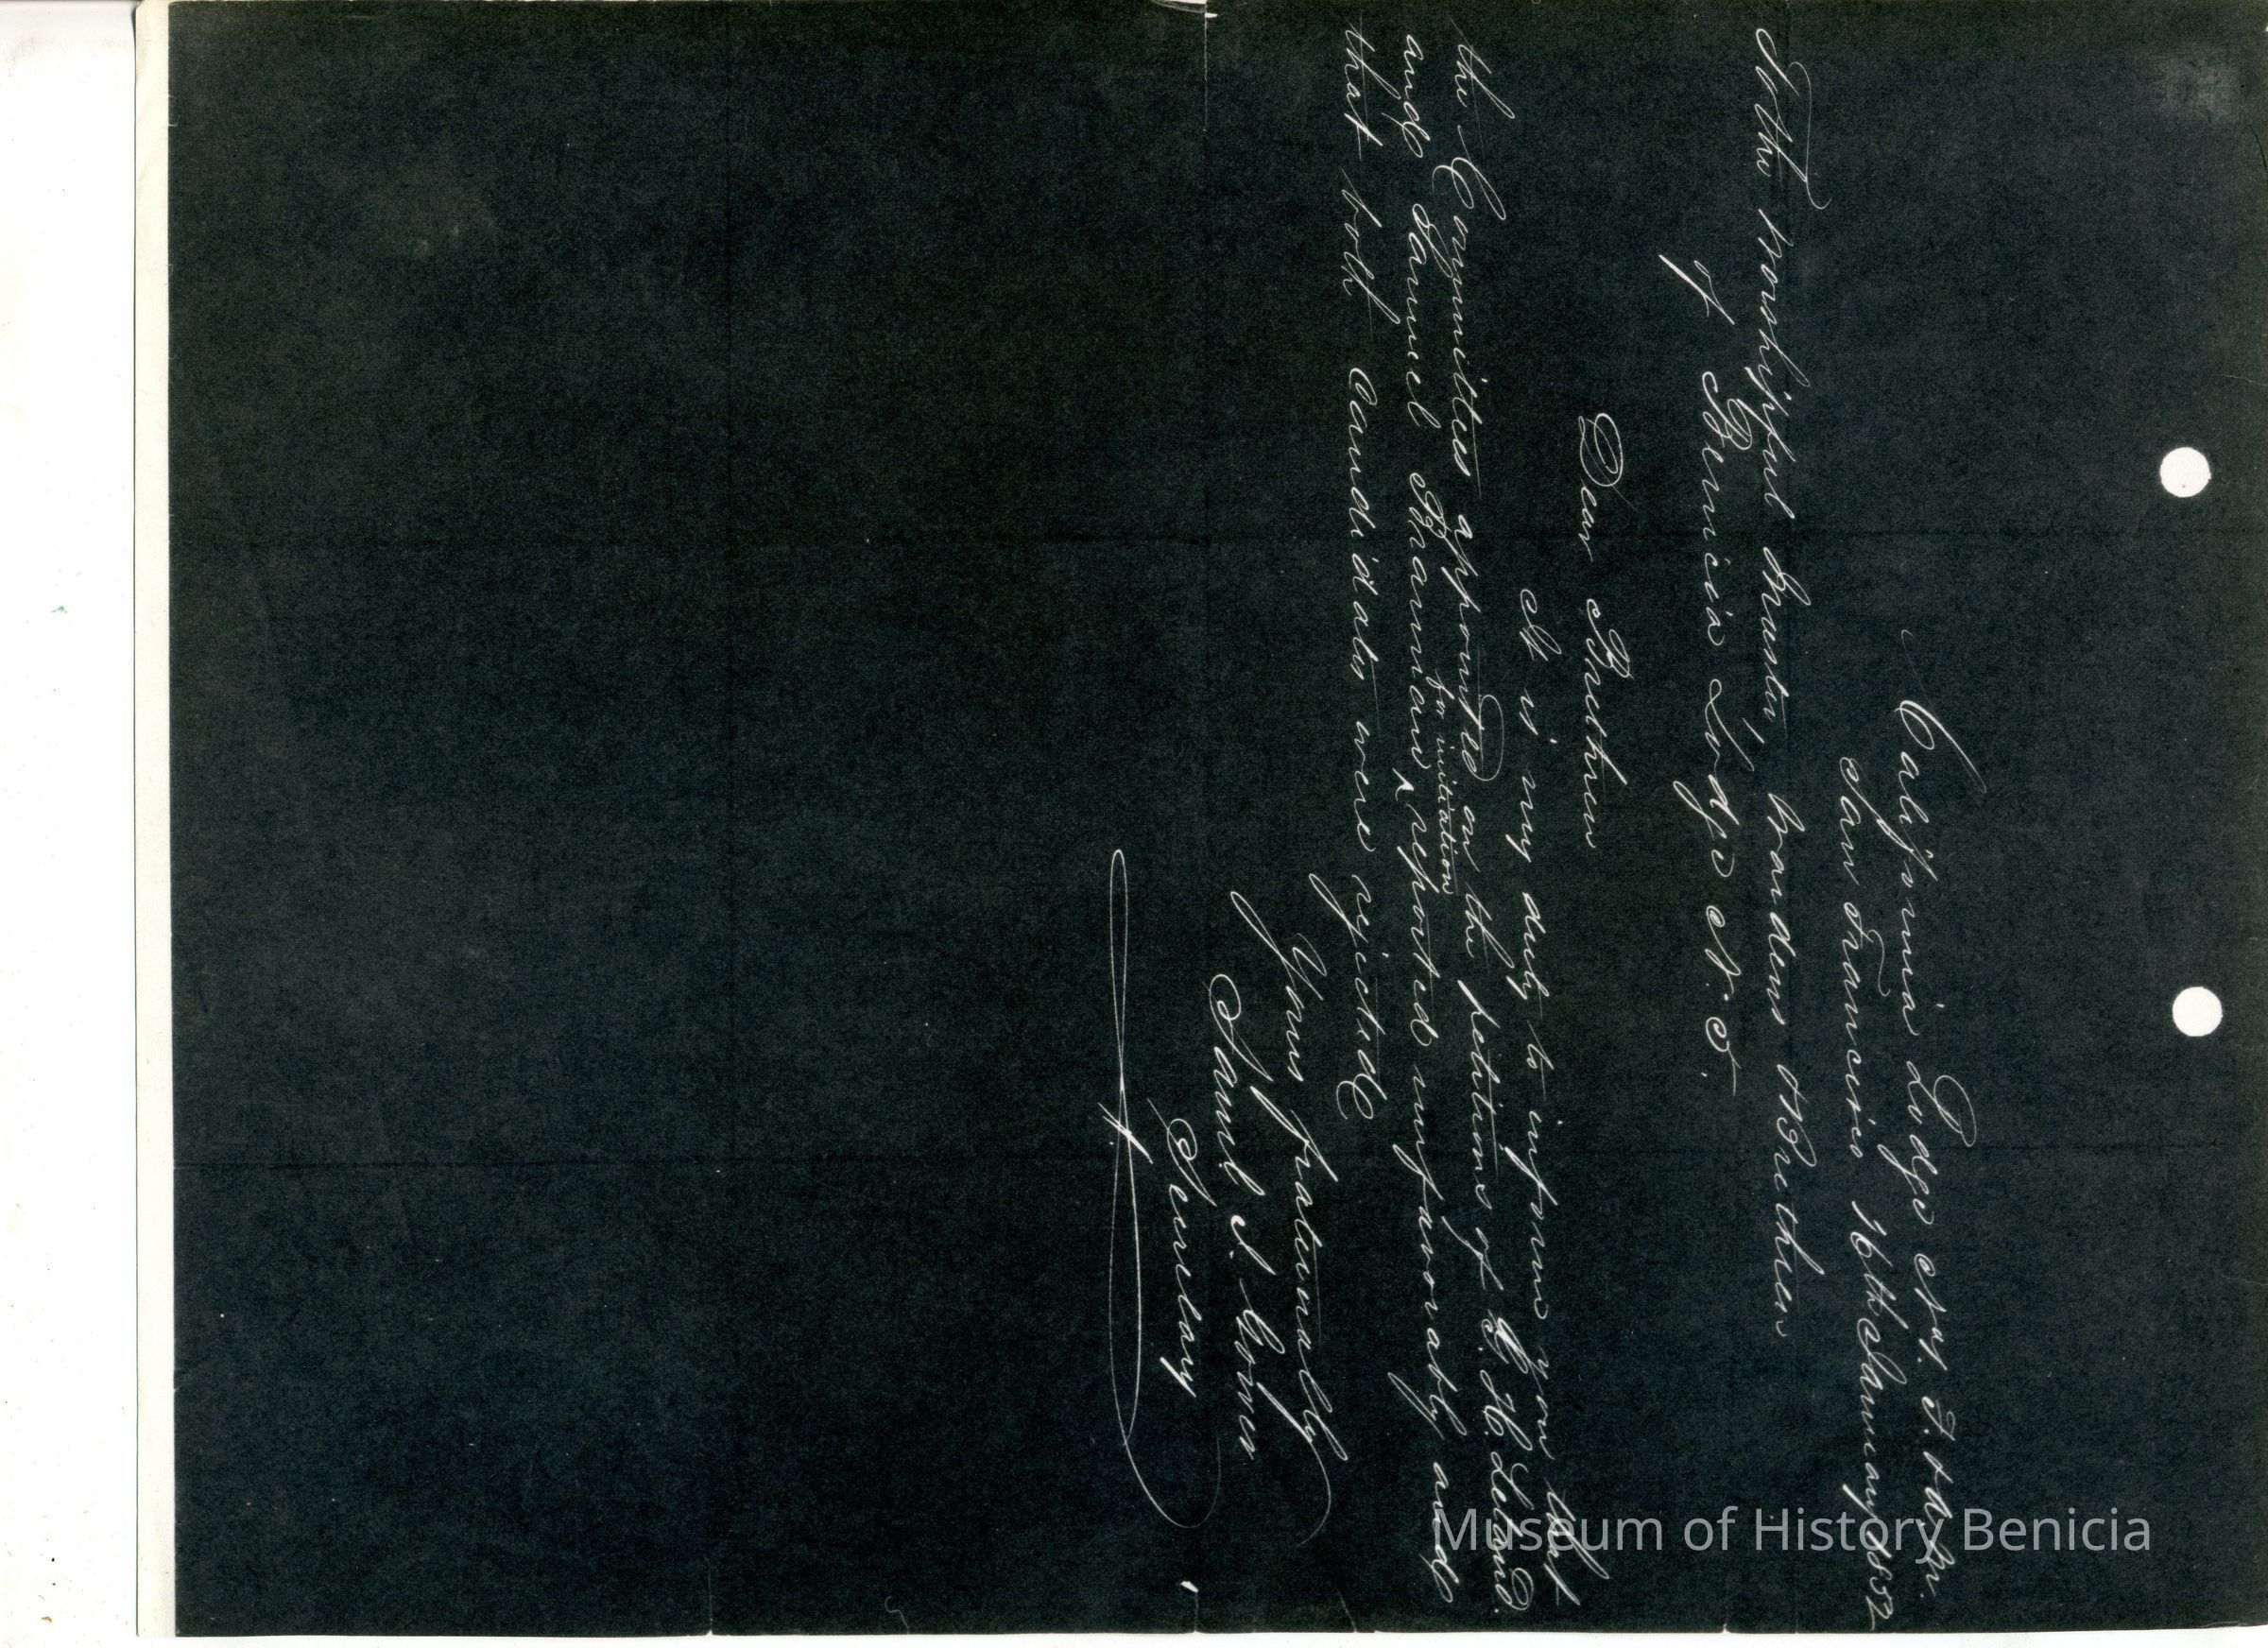 California Lodge No. 1. F. & A. M.
San Francisco 16th January 1852
To the worshipful Master, Wardens & Brethren
of Benicia Lodge No. 5.
Dear Brethren
It is my duty to inform you that
the Committees appointed on the petitions of G. H. Leland.
and Samuel Brannan ^ for initiation reported unfavorably and
that both Candidates were rejected
Yours fraternally
Saml. S.
Secretary
Museum of History Benicia